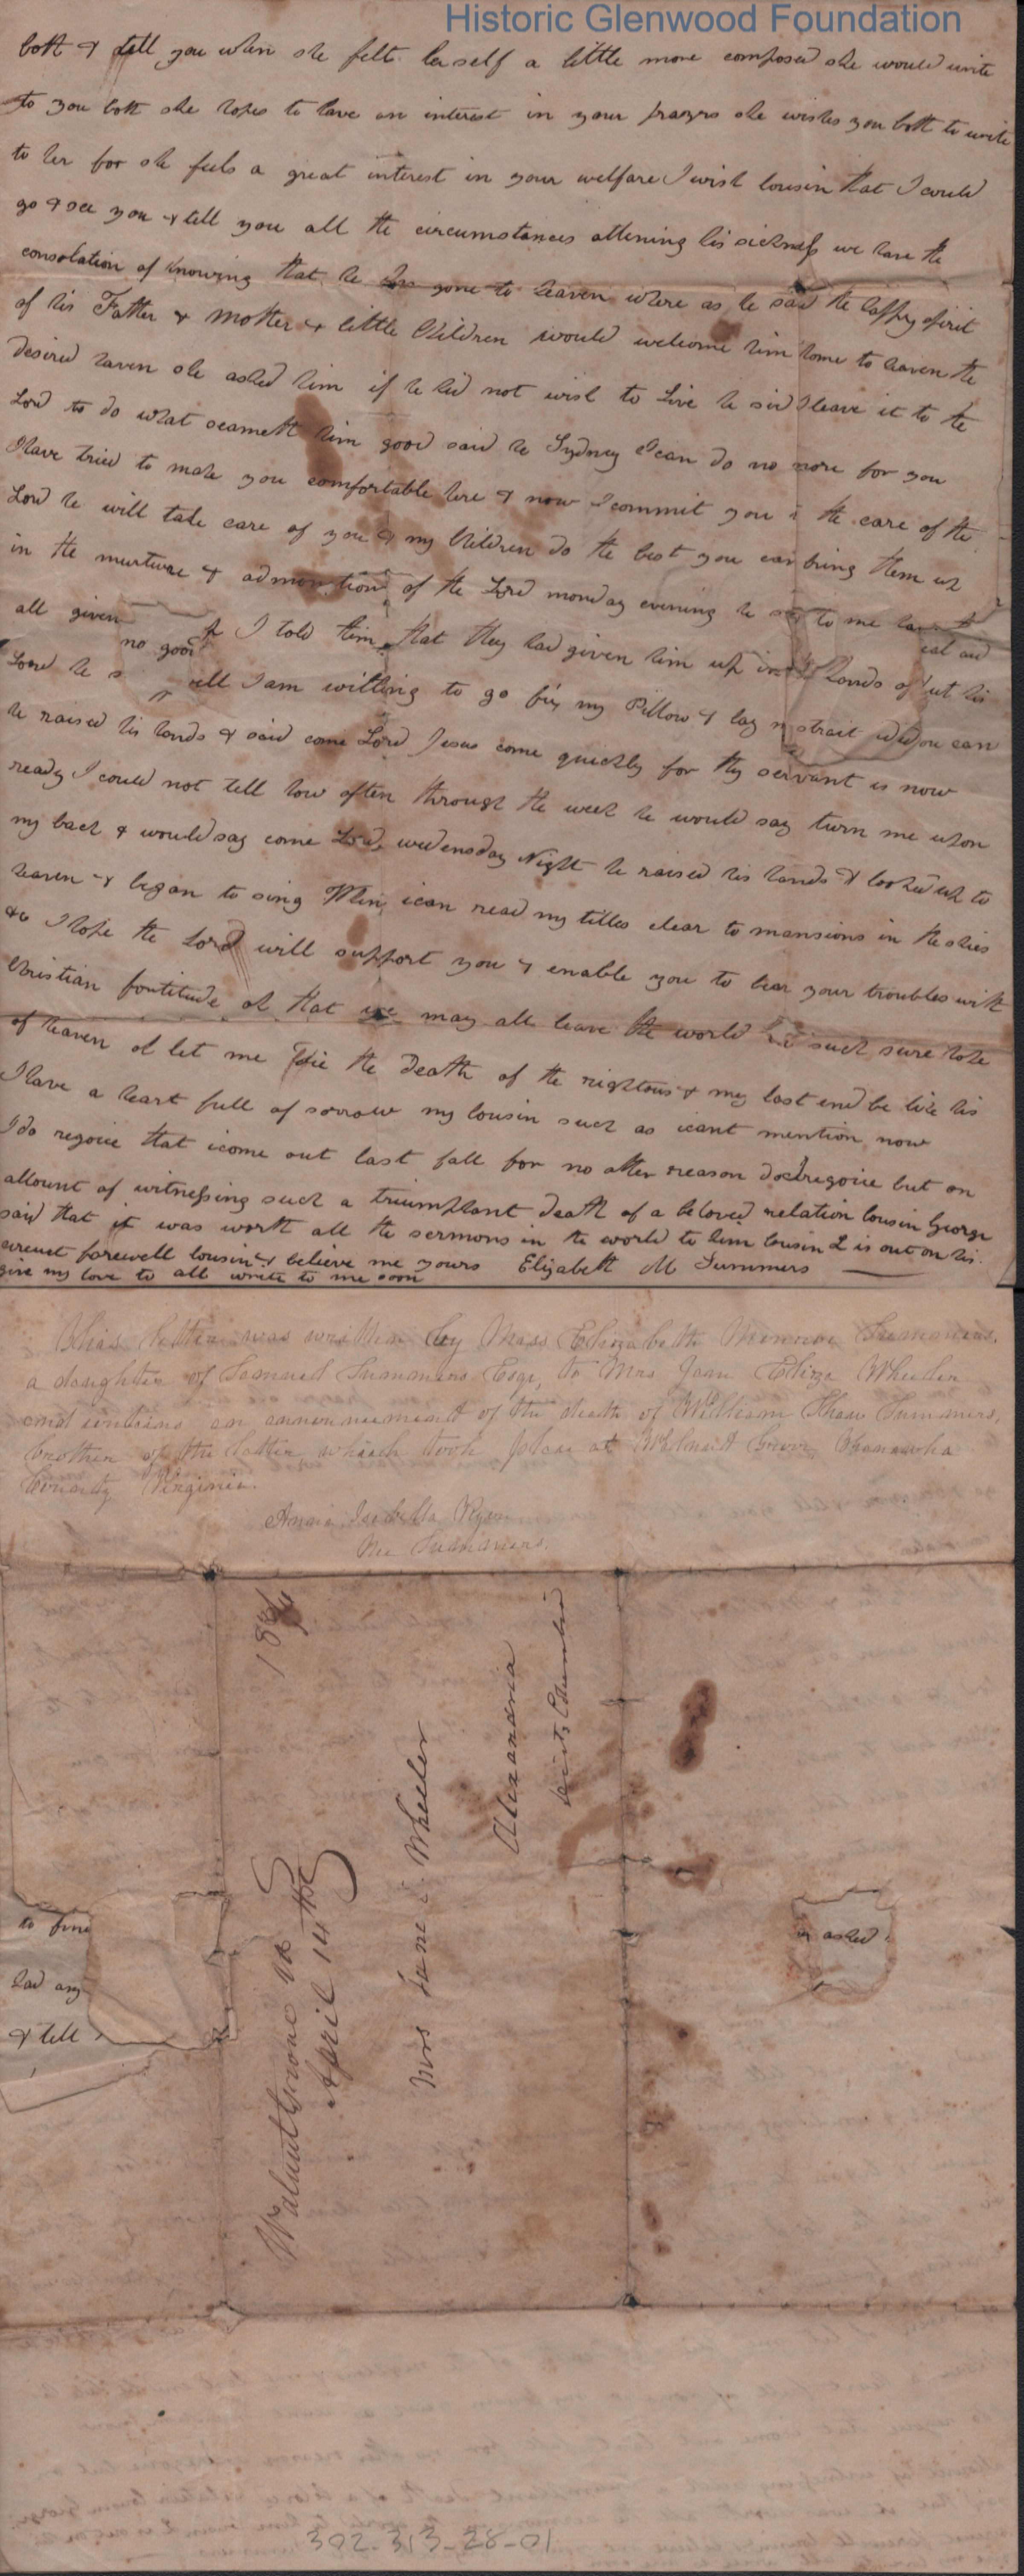 Historic Glenwood Foundation
both & tell you when she felt herself a little more composed she would write
to you both she hopes to have an interest in your prayers she wishes you both to write
to her for she feels a great interest in your welfare I wish Cousin that I could
go & see you & tell you all the circumstances attening his sickness we have the
consolation of knowing that he has gone to heaven where as he said the happy spirit
of his Father & Mother & little Children would welcome him home to heaven the
desired haven she asked him if he did not wish to Live he sid I leave it to the
Lord to do what seameth him good said he Sydney I can do no more for you
I have tried to make you comfortable here & now I commit you the care of the
Lord he will take care of you & my Children do the best you can bring them up
in the nurture & admonition of the Lord monday evening he to me
all given I told him that they had given him up in hands of his
no good
Lord he s ell I am willing to go fix my Pillow & lay m strait you can
he raised his hands & said come Lord Jesus come quickly for thy servant is now
ready I could not tell how often through the week he would say turn me upon
my back & would say come Lord, wedensday Night he raised his hands & looked up to
heaven & began to sing When ican read my titles clear to mansions in the skies
&c I hope the Lord will support you & enable you to bear your troubles with
Christian fortitude oh that we may all leave the world such sure hope
of heaven oh let me die the death of the rightous & my last end be like his
I have a heart full of sorrow my Cousin such as icant mention now
I do regoice that icome out last fall for no other reason do I regoice but on
allount of witnessing such a triumphant death of a beloved relation Cousin George
said that it was worth all the sermons in the world to him Cousin L is out on his
circuet farewell Cousin & believe me yours Elizabeth M Summers
give my love to all write to me soon
This letter was written by Miss Elizabeth Monroe Summers,
a daughter of Samuel Summers Esqr, to Mrs Jane Eliza Wheeler
and contains an announcement of the death of William Shaw Summers,
brother of the latter which took place at Walnut Grove, Kanawha
County Virginia.
Anna Isabella Ryan
Nee Summers.
Walnut Groove va
April 14th
Mrs Jane E Wheeler
Alexandria
to find
had any
& tell
asked
302-313-28-01